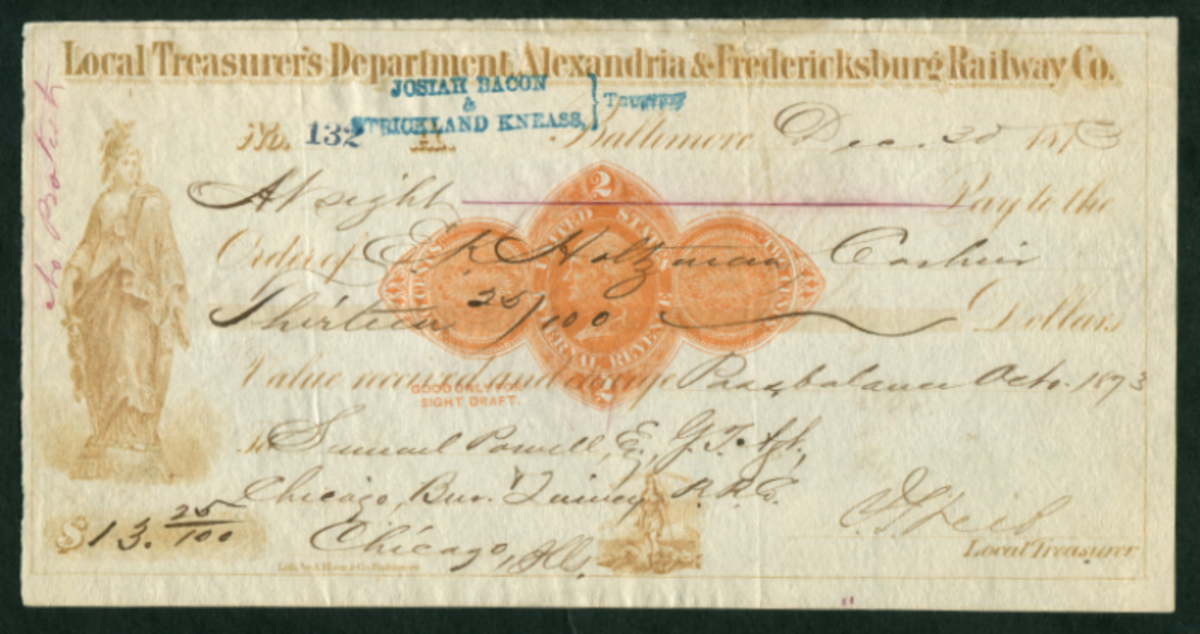 Local Treasurer's Department, Alexandria & Fredericksburg Railway Co.
JOSIAH BACON
&
STRICKLAND KNEASS,
No. 132 Baltimore Dec. 30 1873
At sight Pay to the
Order of E. K. Holtzman Cashier
Thirteen 25/100 Dollars
Value received and charge Pass balance Octo. 1873
To Samuel Powell, E, G.T. Agt,
Chicago, Bur. Quincy R.R. Co.
$13. 25/100 Chicago, Ills.
Local Treasurer
No Protest
2
UNITED STATES
INTERNAL REVENUE
2
GOOD ONLY FOR
SIGHT DRAFT.